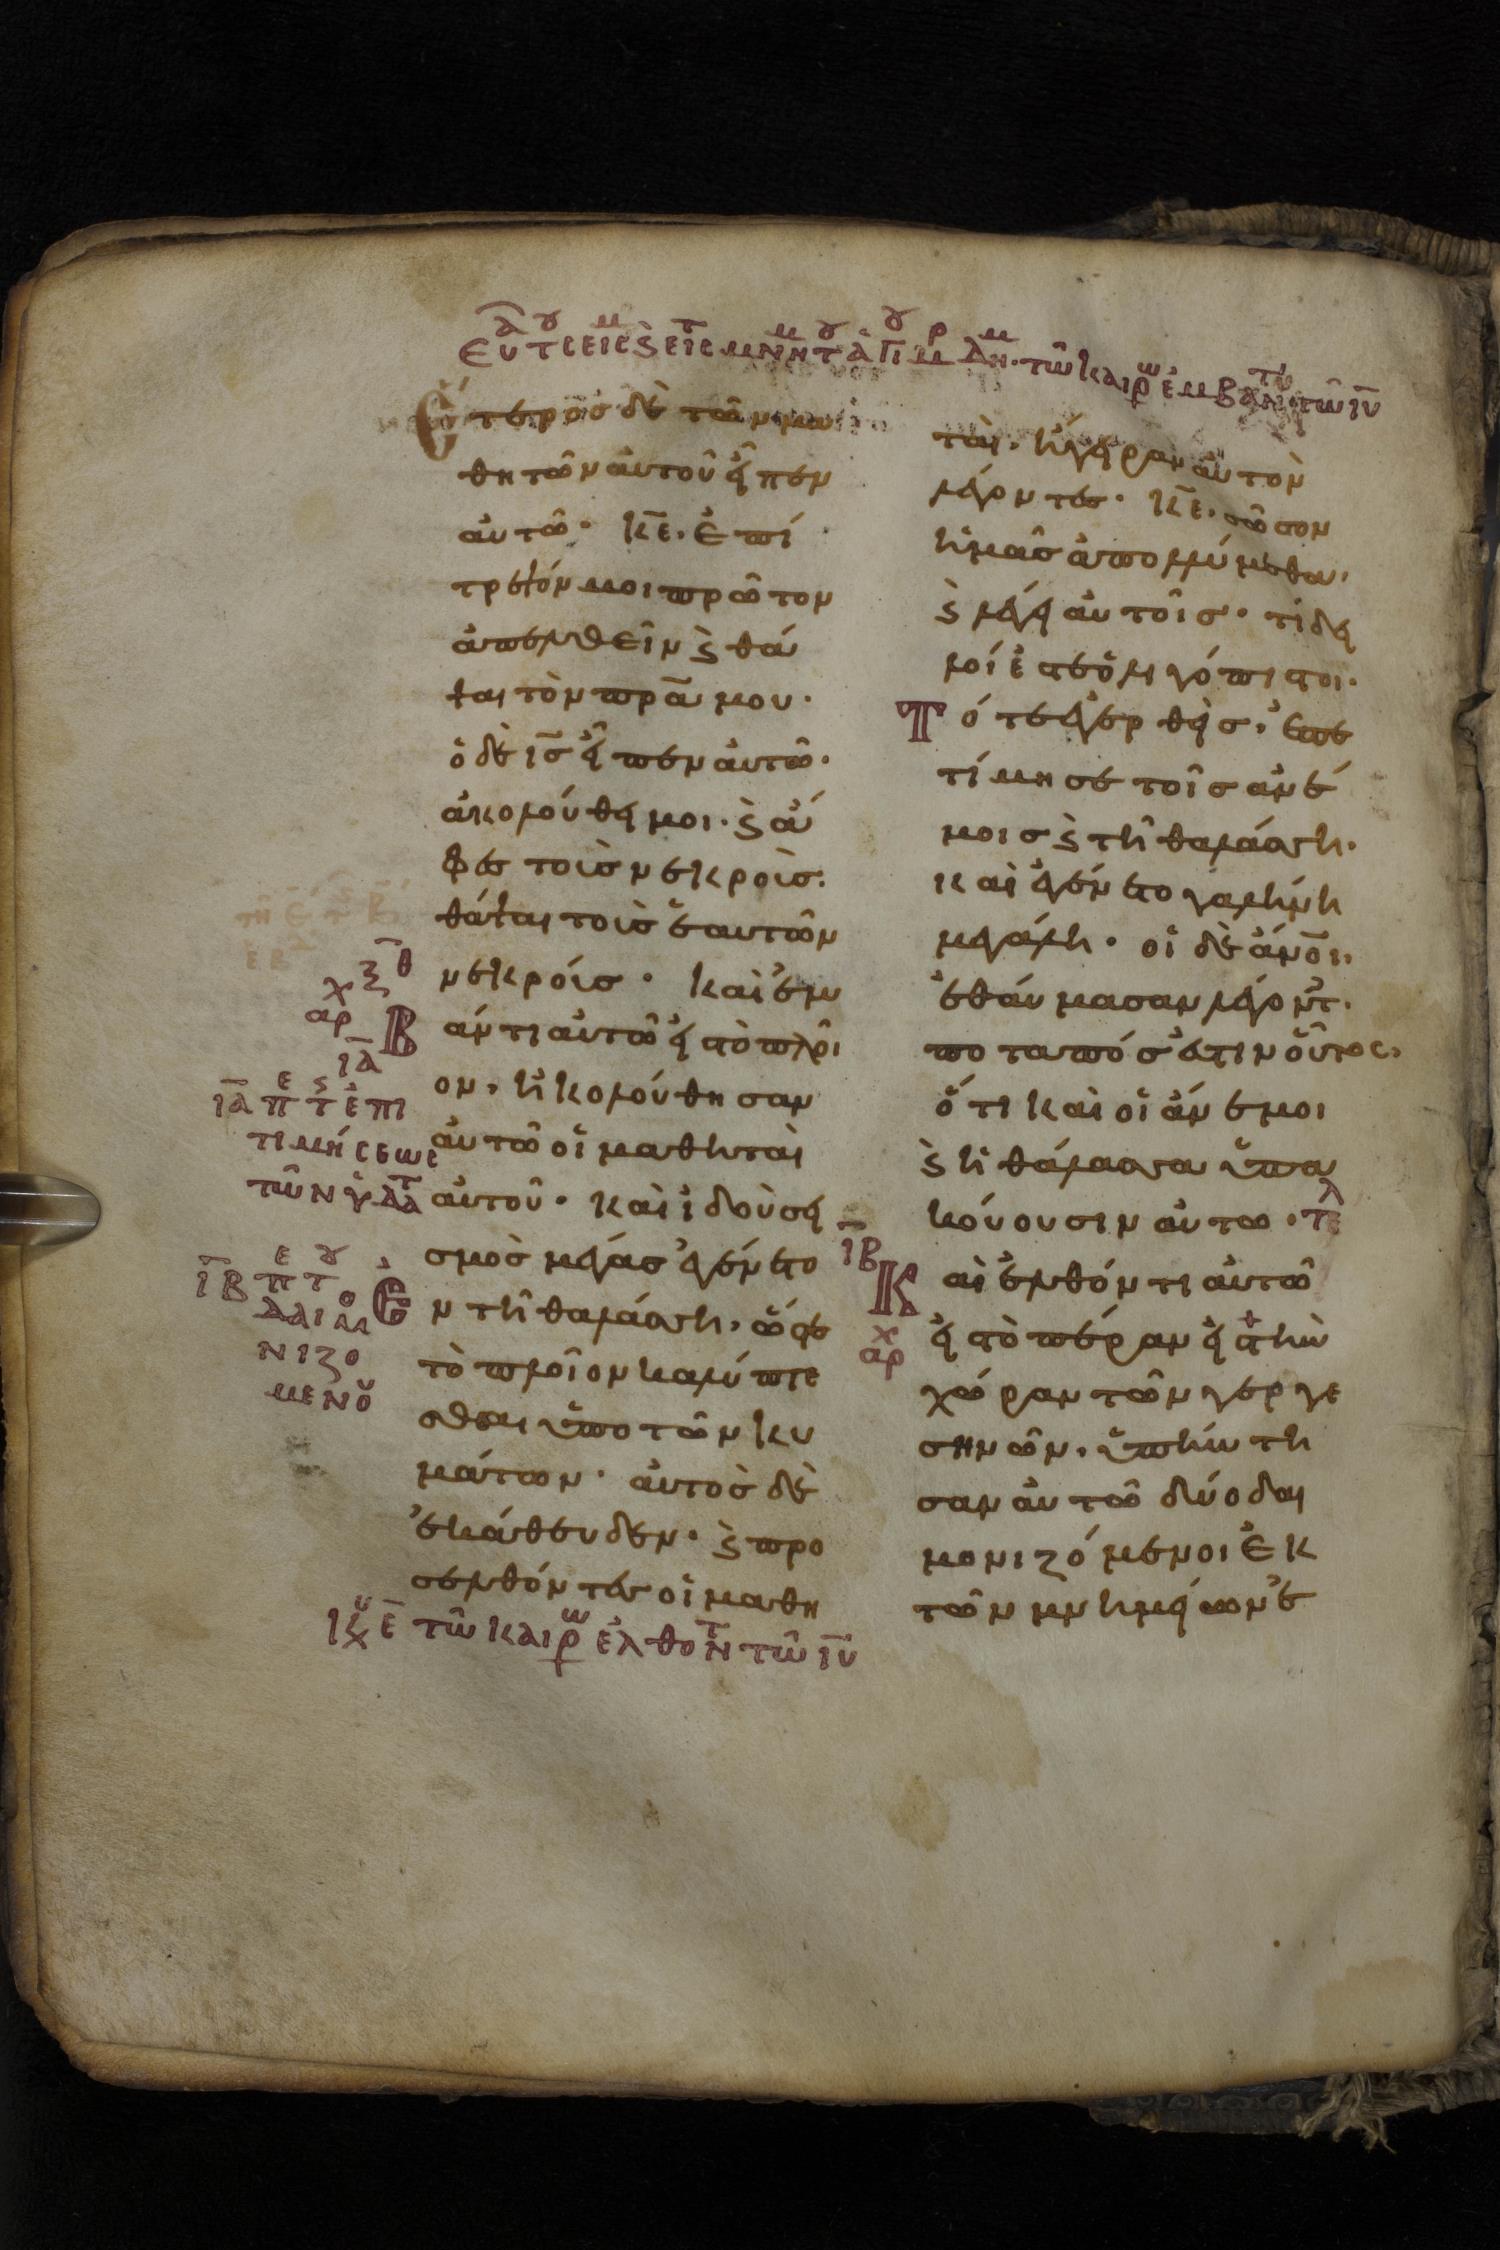 Ἕτερος δὲ τῶν μα
θητῶν αὐτοῦ εἶπεν
αὐτῶ· κ̅ε̅. ἐπί
τρεψόν μοι πρῶτον
ἀπελθεῖν ϗ θά
ψαι τὸν πρ̅α̅ μου·
ὁ δὲ ι̅ς̅ εἶπεν αὐτῶ·
ἀκολούθει μοι· ϗ ἄ
φες τοὺς νεκροὺς·
θάψαι τοὺς ἑαυτῶν
νεκρούς· καὶ ἐμ
βάντι αὐτῶ εἰς τὸ πλοῖ
ον, ἠκολούθησαν
αὐτῶ οἱ μαθηταὶ
αὐτοῦ· καὶ ἰδοὺ σει
σμὸς μέγας ἐγένετο
ἐν τῆ θαλάσση, ὥστε
τὸ πλοῖον καλύπτε
σθαι ὑπο τῶν κυ
μάτων· αὐτὸς δὲ
ἐκάθευδεν· ϗ προ
σελθόντες οἱ μαθη
ταὶ. ἤγειραν αὐτὸν
λέγοντες· κ̅ε̅. σῶσον
ἡμᾶς ἀπολλύμεθα,
ϗ λέγει αὐτοῖς· τί δει
λοί ἐστε ὀλιγόπιστοι·
Τότε ἐγερθεὶς, ἐπε
τίμησε τοῖς ἀνέ
μοις ϗ τῆ θαλάσση·
καὶ ἐγένετο γαλήνη
μεγάλη· οἱ δὲ ἄν̅ο̅ι,
ἐθαύμασαν λέγοντ·
ποταπός ἐστιν οὗτος,
ὅτι καὶ οἱ ἄνεμοι
ϗ ἡ θάλασσα ὑπα
κούουσιν αὐτω· τελ
Καὶ ἐλθόντι αὐτῶ
εἰς τὸ πέραν εἰς τὴν
χώραν τῶν γεργε
σηνῶν, ὑπήντη
σαν αὐτῶ δύο δαι
μονιζόμενοι ἐκ
τῶν μνημείων ἐ
ι̅α̅ π τ ἐπι
τιμήσεως
τῶν ὑδάτ
ι̅β̅ π τ
δαιμο
νιζο
μένου
ι̅β̅
αρ